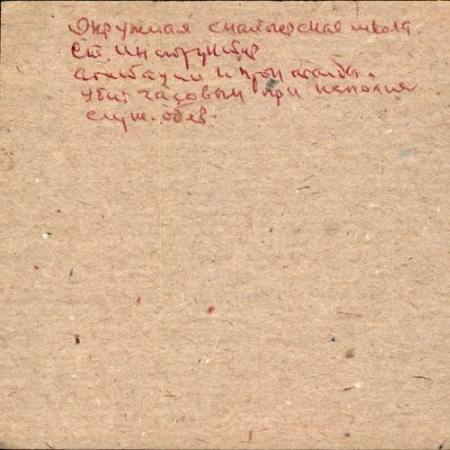 Окружная снайперская школа.
Ст. Инструктор
агитации и пропаганды.
Убит часовым при исполне
служ. обяз.